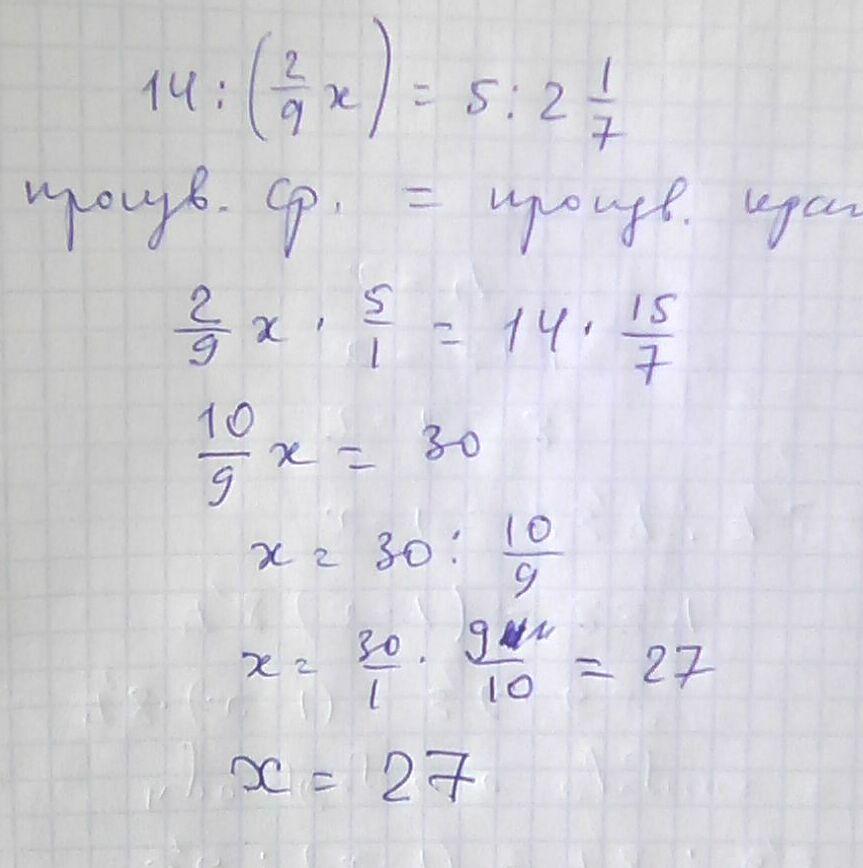 14 : (2/9 x) = 5 : 2 1/7
произв. ср. = произв. край
2/9 x · 5/1 = 14 · 15/7
10/9 x = 30
x = 30 : 10/9
x = 30/1 · 9/10 = 27
x = 27